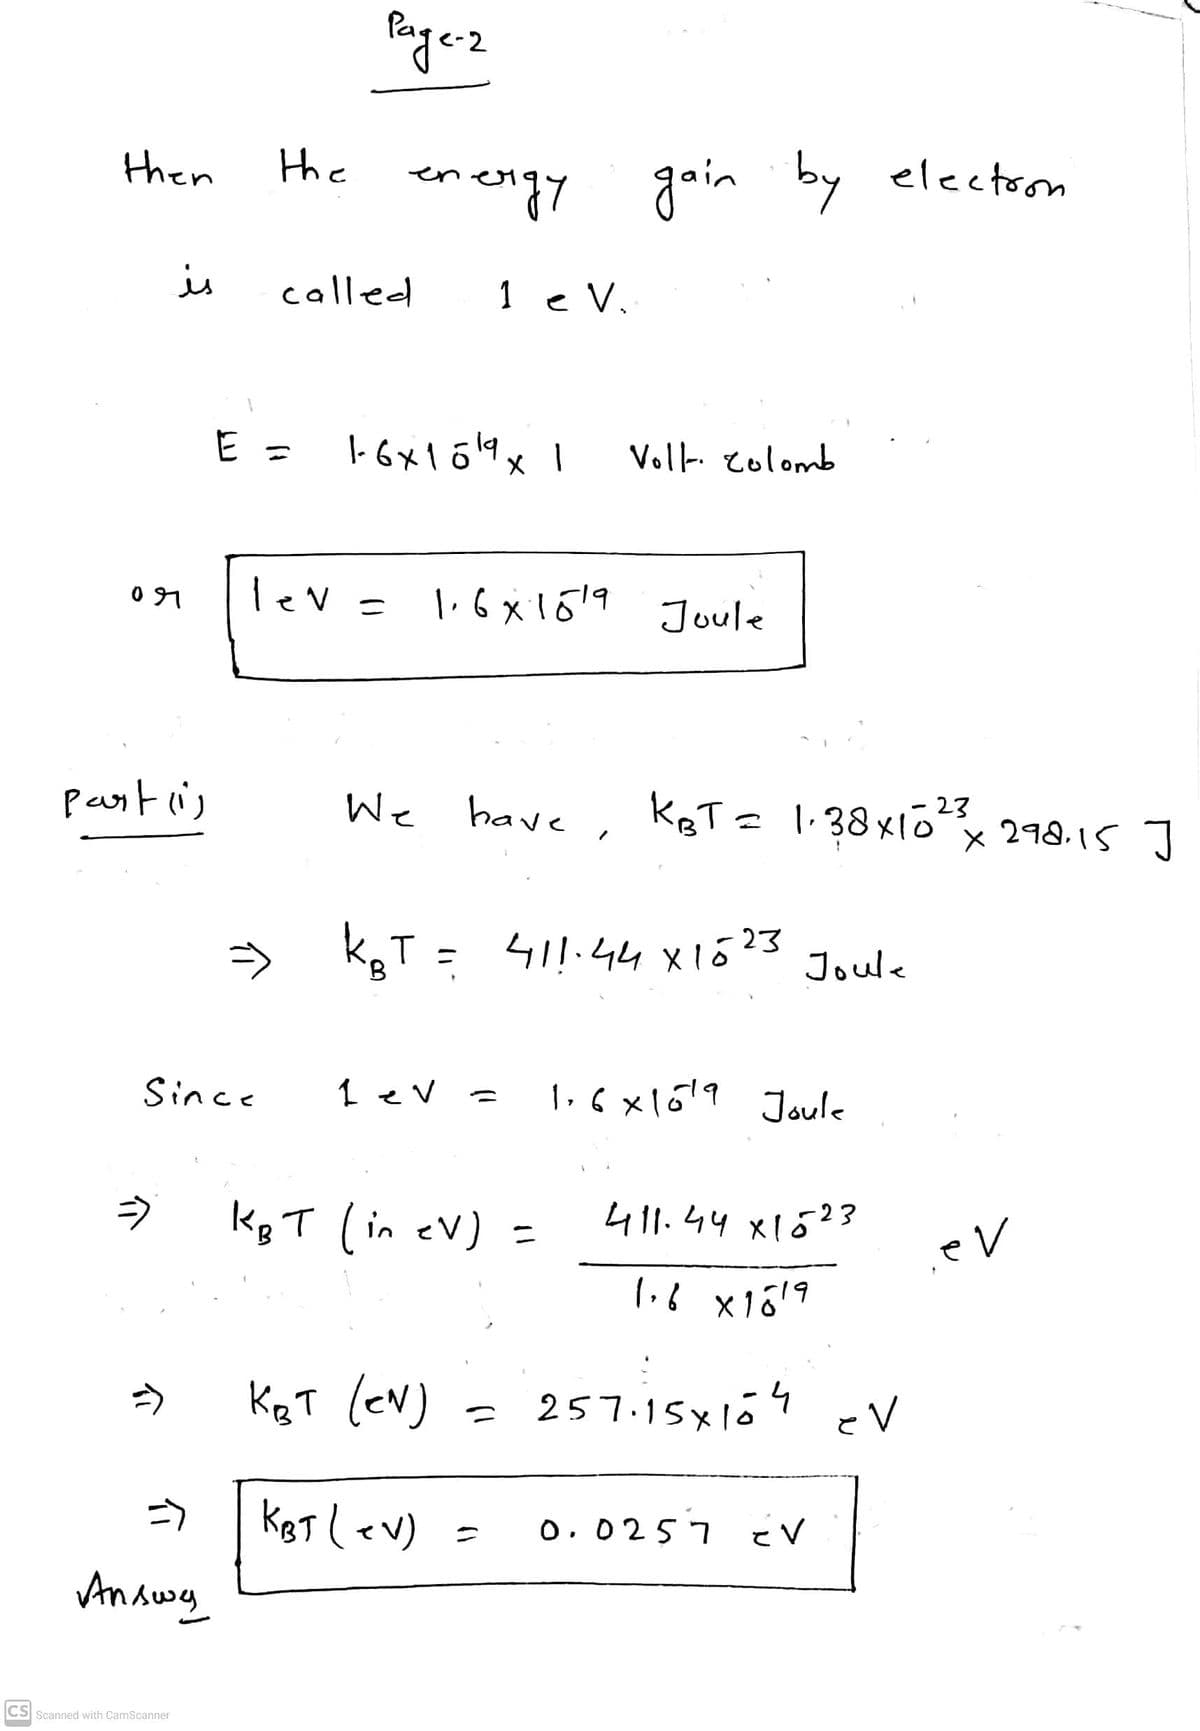 Page-2
then the energy gain by electron
is called 1 eV.
E = 1.6×10⁻¹⁹ × 1 Volt. colomb
or 1eV = 1.6×10⁻¹⁹ Joule
Part (i) We have, KBT = 1.38×10⁻²³ × 298.15 J
⇒ KBT = 411.44 ×10⁻²³ Joule
Since 1 eV = 1.6×10⁻¹⁹ Joule
⇒ KBT (in eV) = 411.44 ×10⁻²³ / 1.6 ×10⁻¹⁹ eV
⇒ KBT (eV) = 257.15×10⁻⁴ eV
⇒ KBT (eV) = 0.0257 eV
Answer
CS Scanned with CamScanner